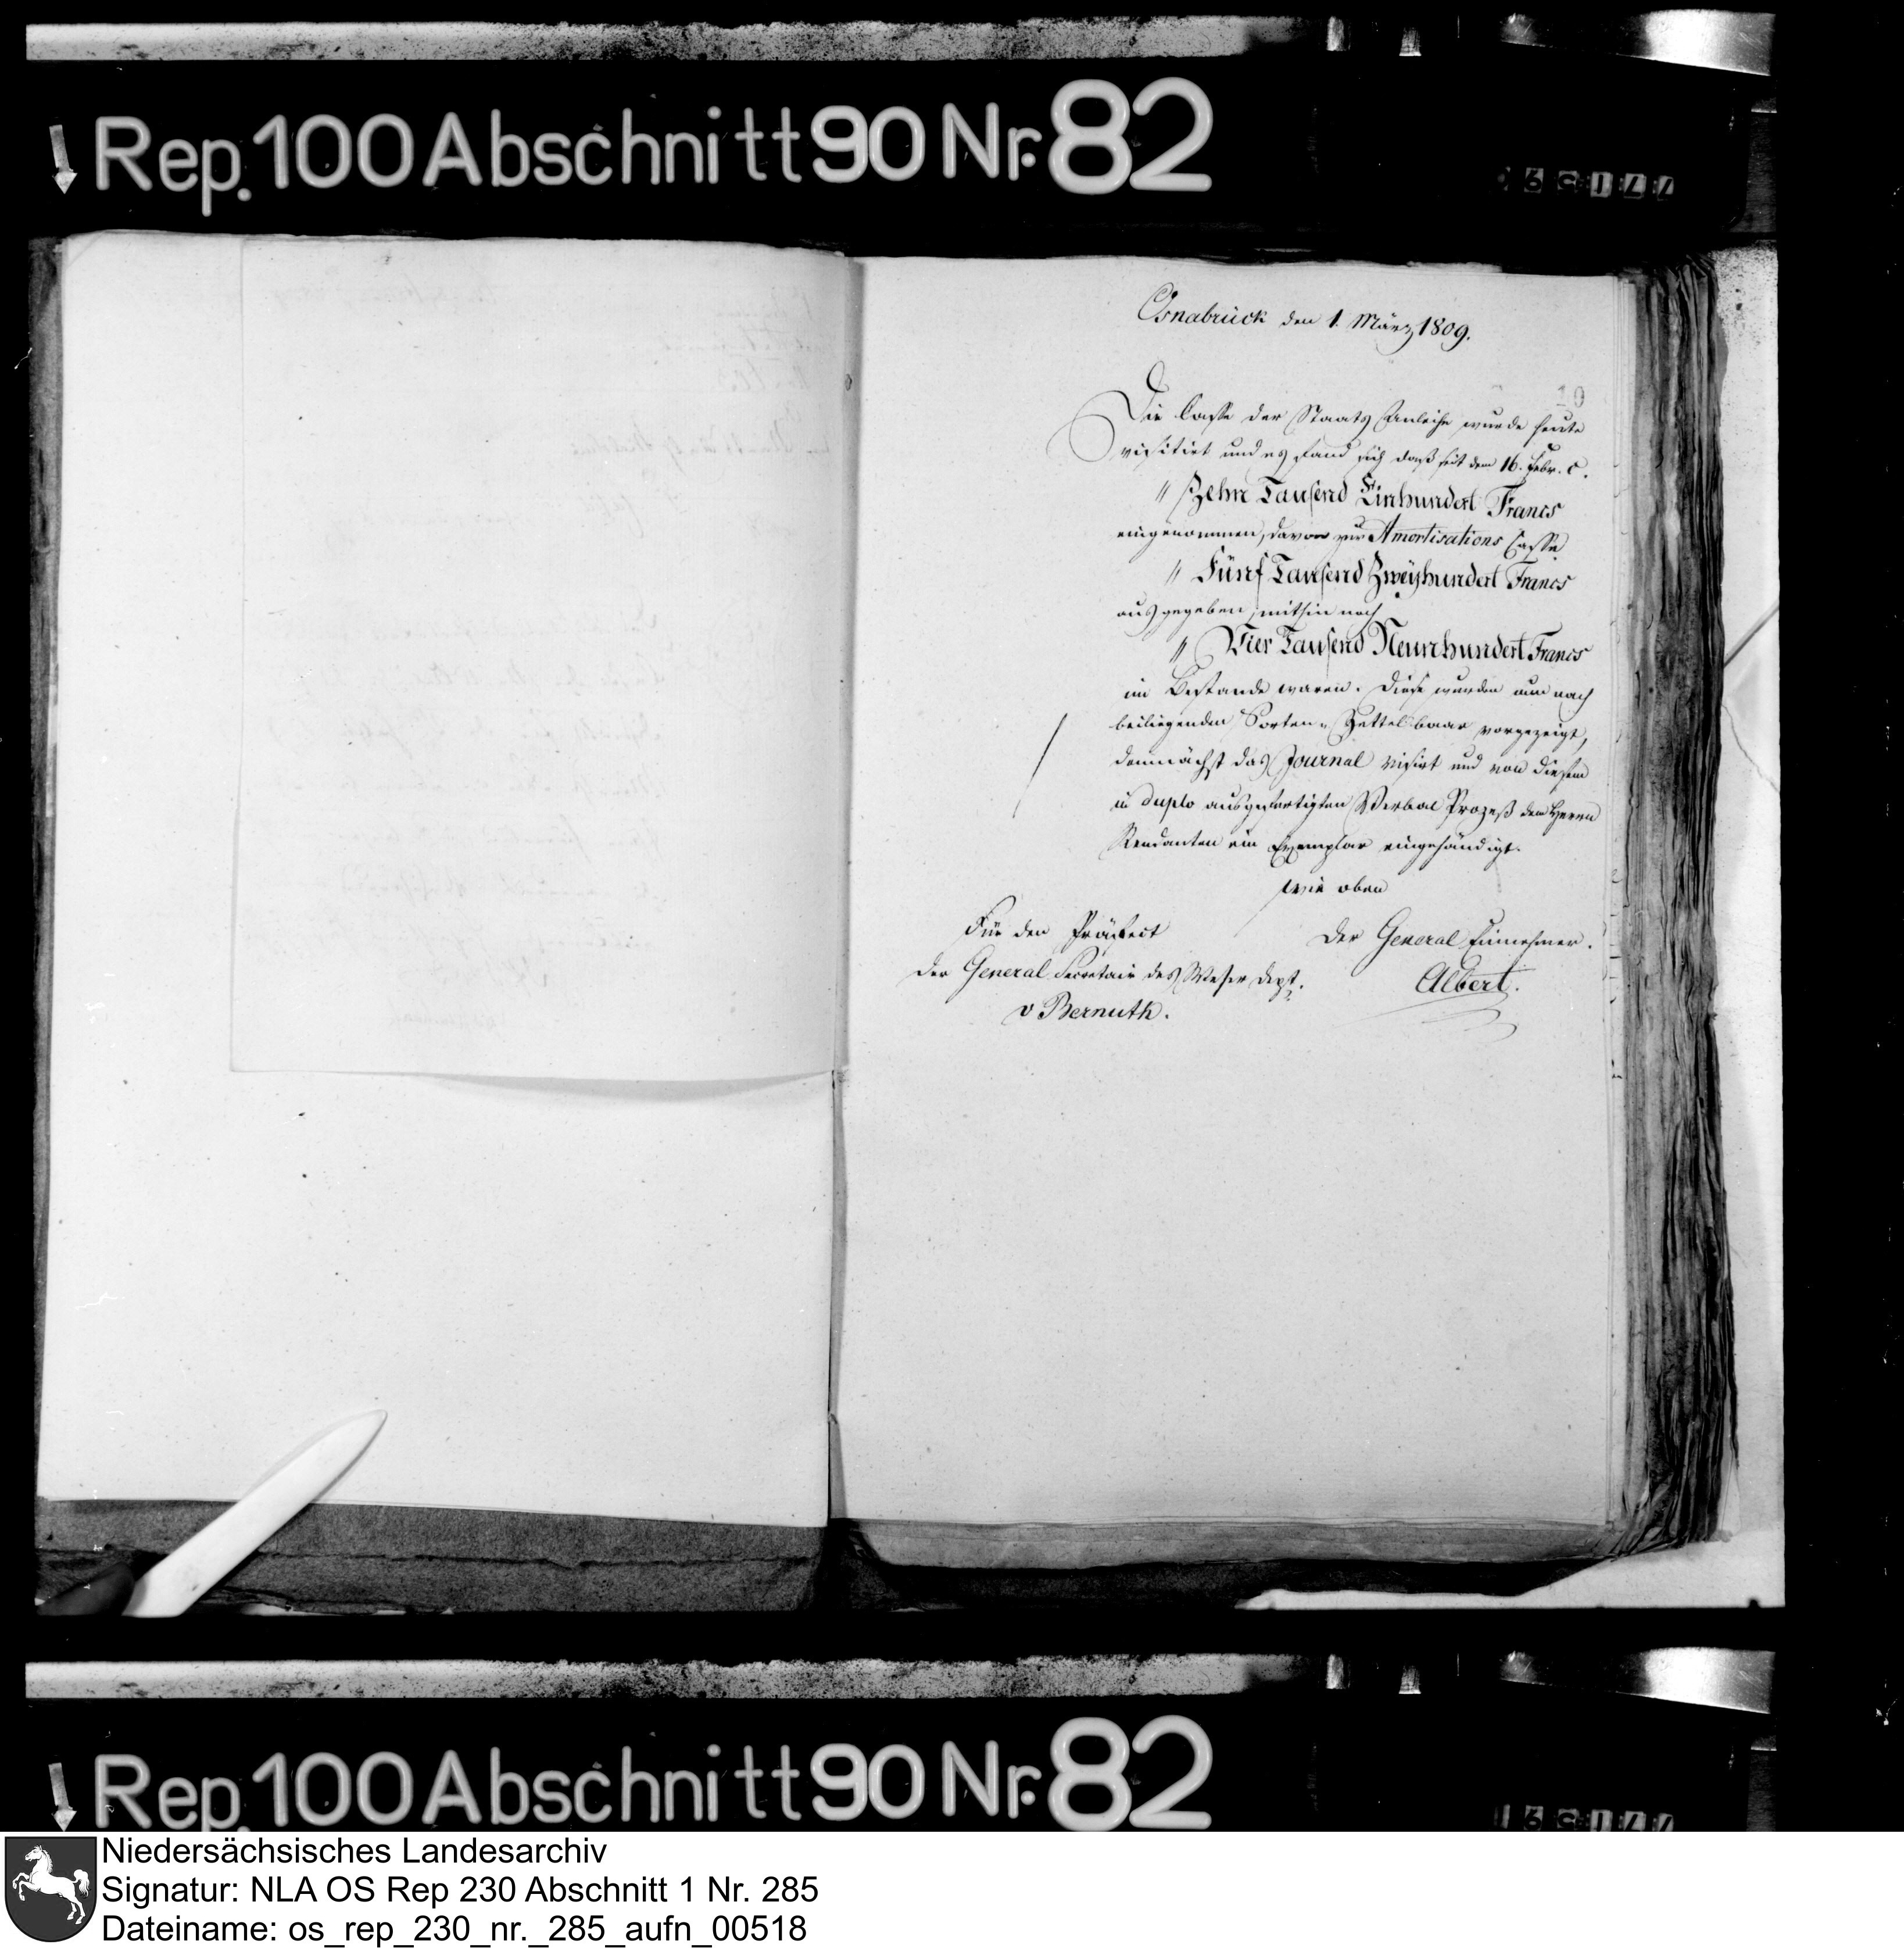 Rep. 100 Abschnitt 90 Nr. 82
Osnabrück den 1. März 1809.
10
Die Casse der Staats Anleihe wurde heute
visitirt und es fand sich daß seit dem 16. Febr. c.
" Zehn Tausend Einhundert Francs
eingenommen, davon zur Amortisations Casse
" Fünf Tausend Zweyhundert Francs
ausgegeben, mithin noch
" Vier Tausend Neunhundert Francs
im Bestande waren. Diese wurden nun nach
beiliegenden Sorten-Zettel baar vorgezeigt,
demnächst das Journal visirt und von diesem
in duplo ausgefertigten Verbal Prozeß dem Herrn
Rendanten ein Exemplar eingehändigt.
wie oben
Für den Präfect
der General Secretair des Weser Dept.
v Bernuth.
Der General Einnehmer.
Albert.
Rep. 100 Abschnitt 90 Nr. 82
Niedersächsisches Landesarchiv
Signatur: NLA OS Rep 230 Abschnitt 1 Nr. 285
Dateiname: os_rep_230_nr._285_aufn_00518